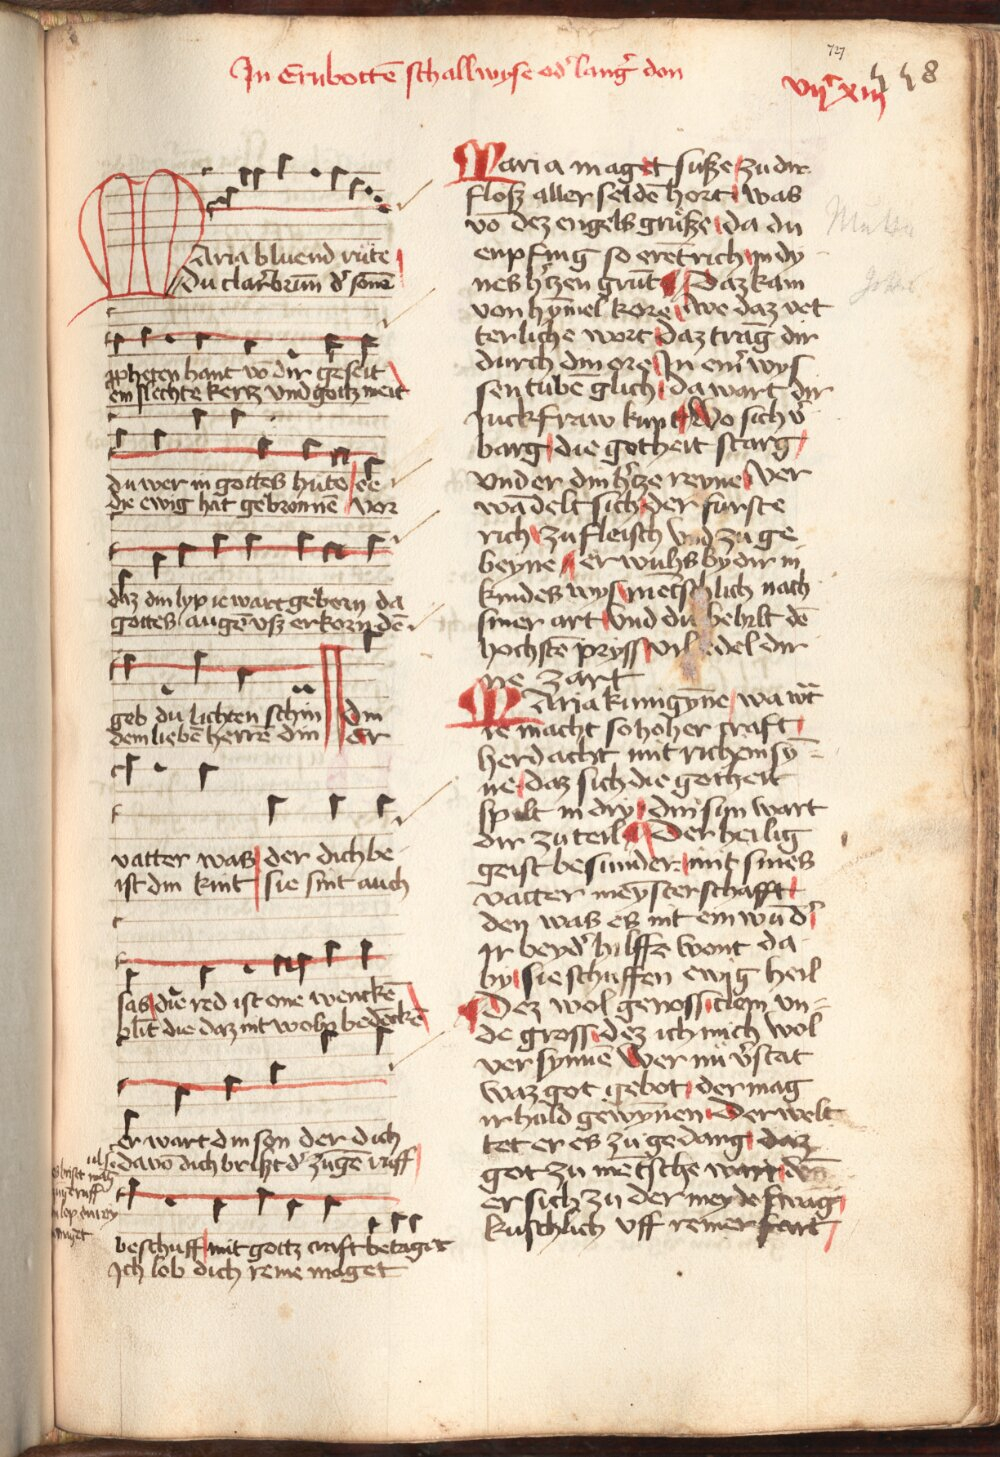 In Erenbottē schallwyse od' lang' don
727
vijᶜ xiij
448
Maria bluend rute
Du clar' brūn d' sonē
ppheten hant vō dir geseit
ein slechte kertz und gottz meit
du wer in gottes hute ee
die ewig hat gebronnē vor
daz din lyp ie wart geborn da
gottes augē usz erkorn dē
geb du lichten schin din
dem liebē herrē din er
vatter was der dich be
ist din kint sie sint auch
sas die red ist one wenckē
plit die daz nit woln bedeckē
er wart din son der dich
davō dich briszt d' zūgē ruff
beschuff mit gottz craft betagit
Ich lob dich reine maget
Maria maget susze zu dir
flosz aller seldē hort was
vō dez engels grusze da du
enpfing so erētrich in dy
nes h'tzen grūt Daz kam
von hymel kore we daz vet
terliche wort daz trāg dir
durch din ore In em' wys
sen tubē glich da wart dir
Juckfraw kunt Wo sich v'
barg die gotheit starg
under din h'tze reyne Ver
wādelt sich der furste
rich zu fleisch und zu ge
beyne er wuhs by dir in
kindes wys mētschlich nach
siner art und du behilt dē
hochstē pryss vil edel dir
ne zart
Maria kunigyne wa wt
ie macht so hoher craft
herdacht mit richem sy
ne daz sich die gotheit
spilt in dry din sun wart
dir zu teil Der heilig
geist besunder mit sines
vatter meysterschafft
den was es nit ein wūd'
Ir beyd' hilffe wont da
by sie schuffen ewig heil
Dez wol genoss ciem vn
de gross dez ich mich wol
versynnē Wer nu v'stat
waz got gebot der mag
ir hald gewynnen Der welt
tet er es zu gedang daz
got zu mētsche wart
er sich zu der meyde swāg
kuschlich uff reiner fart